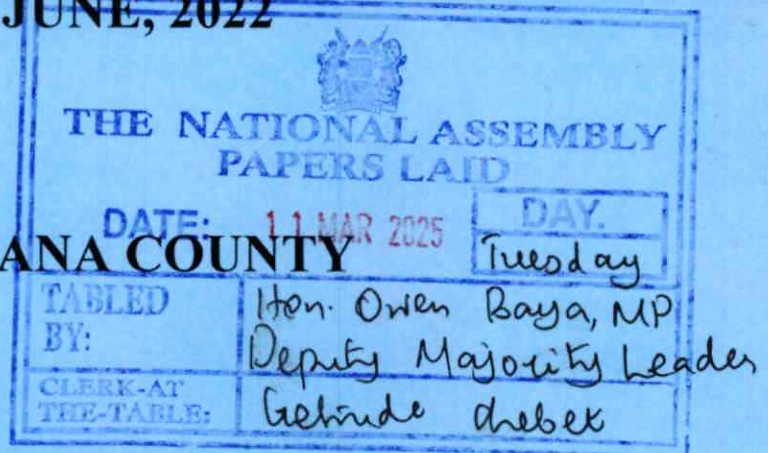 JUNE, 2022
THE NATIONAL ASSEMBLY
PAPERS LAID
DATE: 11 MAR 2025
DAY.
Tuesday
ANA COUNTY
TABLED
BY:
Hon. Owen Baya, MP
Deputy Majority Leader
CLERK-AT
THE-TABLE:
Chebet